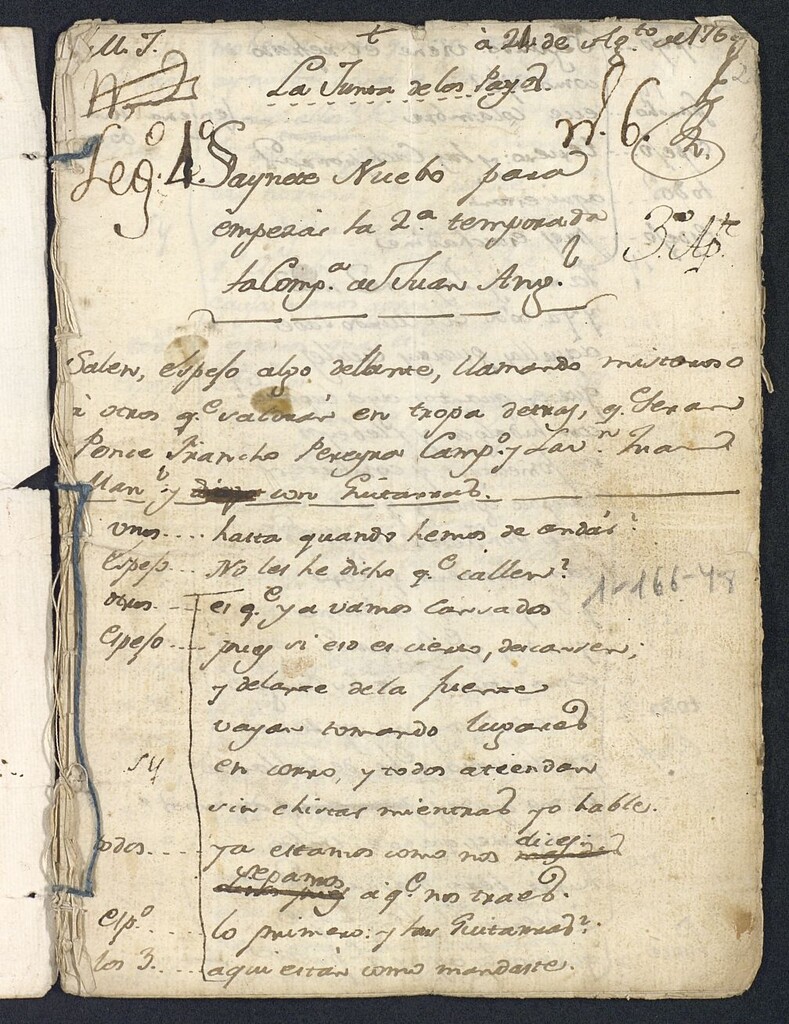 M. J. t à 24 de Ag.to de 176
La Junta de los Payos
n.º 6.
Leg.º 4.º Saynete Nuebo para
empezar la 2.ª temporada
3.º Ap.te
la Comp.ª de Juan Ang.l
Salen, espejo algo delante, llamando misterioso
à otros q.e saldrán en tropa detras, q. seran
Ponce Francho Pereyra Camp.º y
Man.l y con Guitarras.
unos.... hasta quando hemos de andar?
espejo... No les he dicho q.e callen?
otros... es q.e ya vamos cansados
espejo.... pues si eso es cierto, descansen;
y delante de la fuente
vayan tomando lugares
sy en corro, y todos atiendan
sin chistar mientras yo hable.
todos.... ya estamos como nos dices:
sepamos à q.e nos traes.
esp.º ... lo primero: y las Guitarras?
los 3.... aqui están como mandaste.
1-166-48